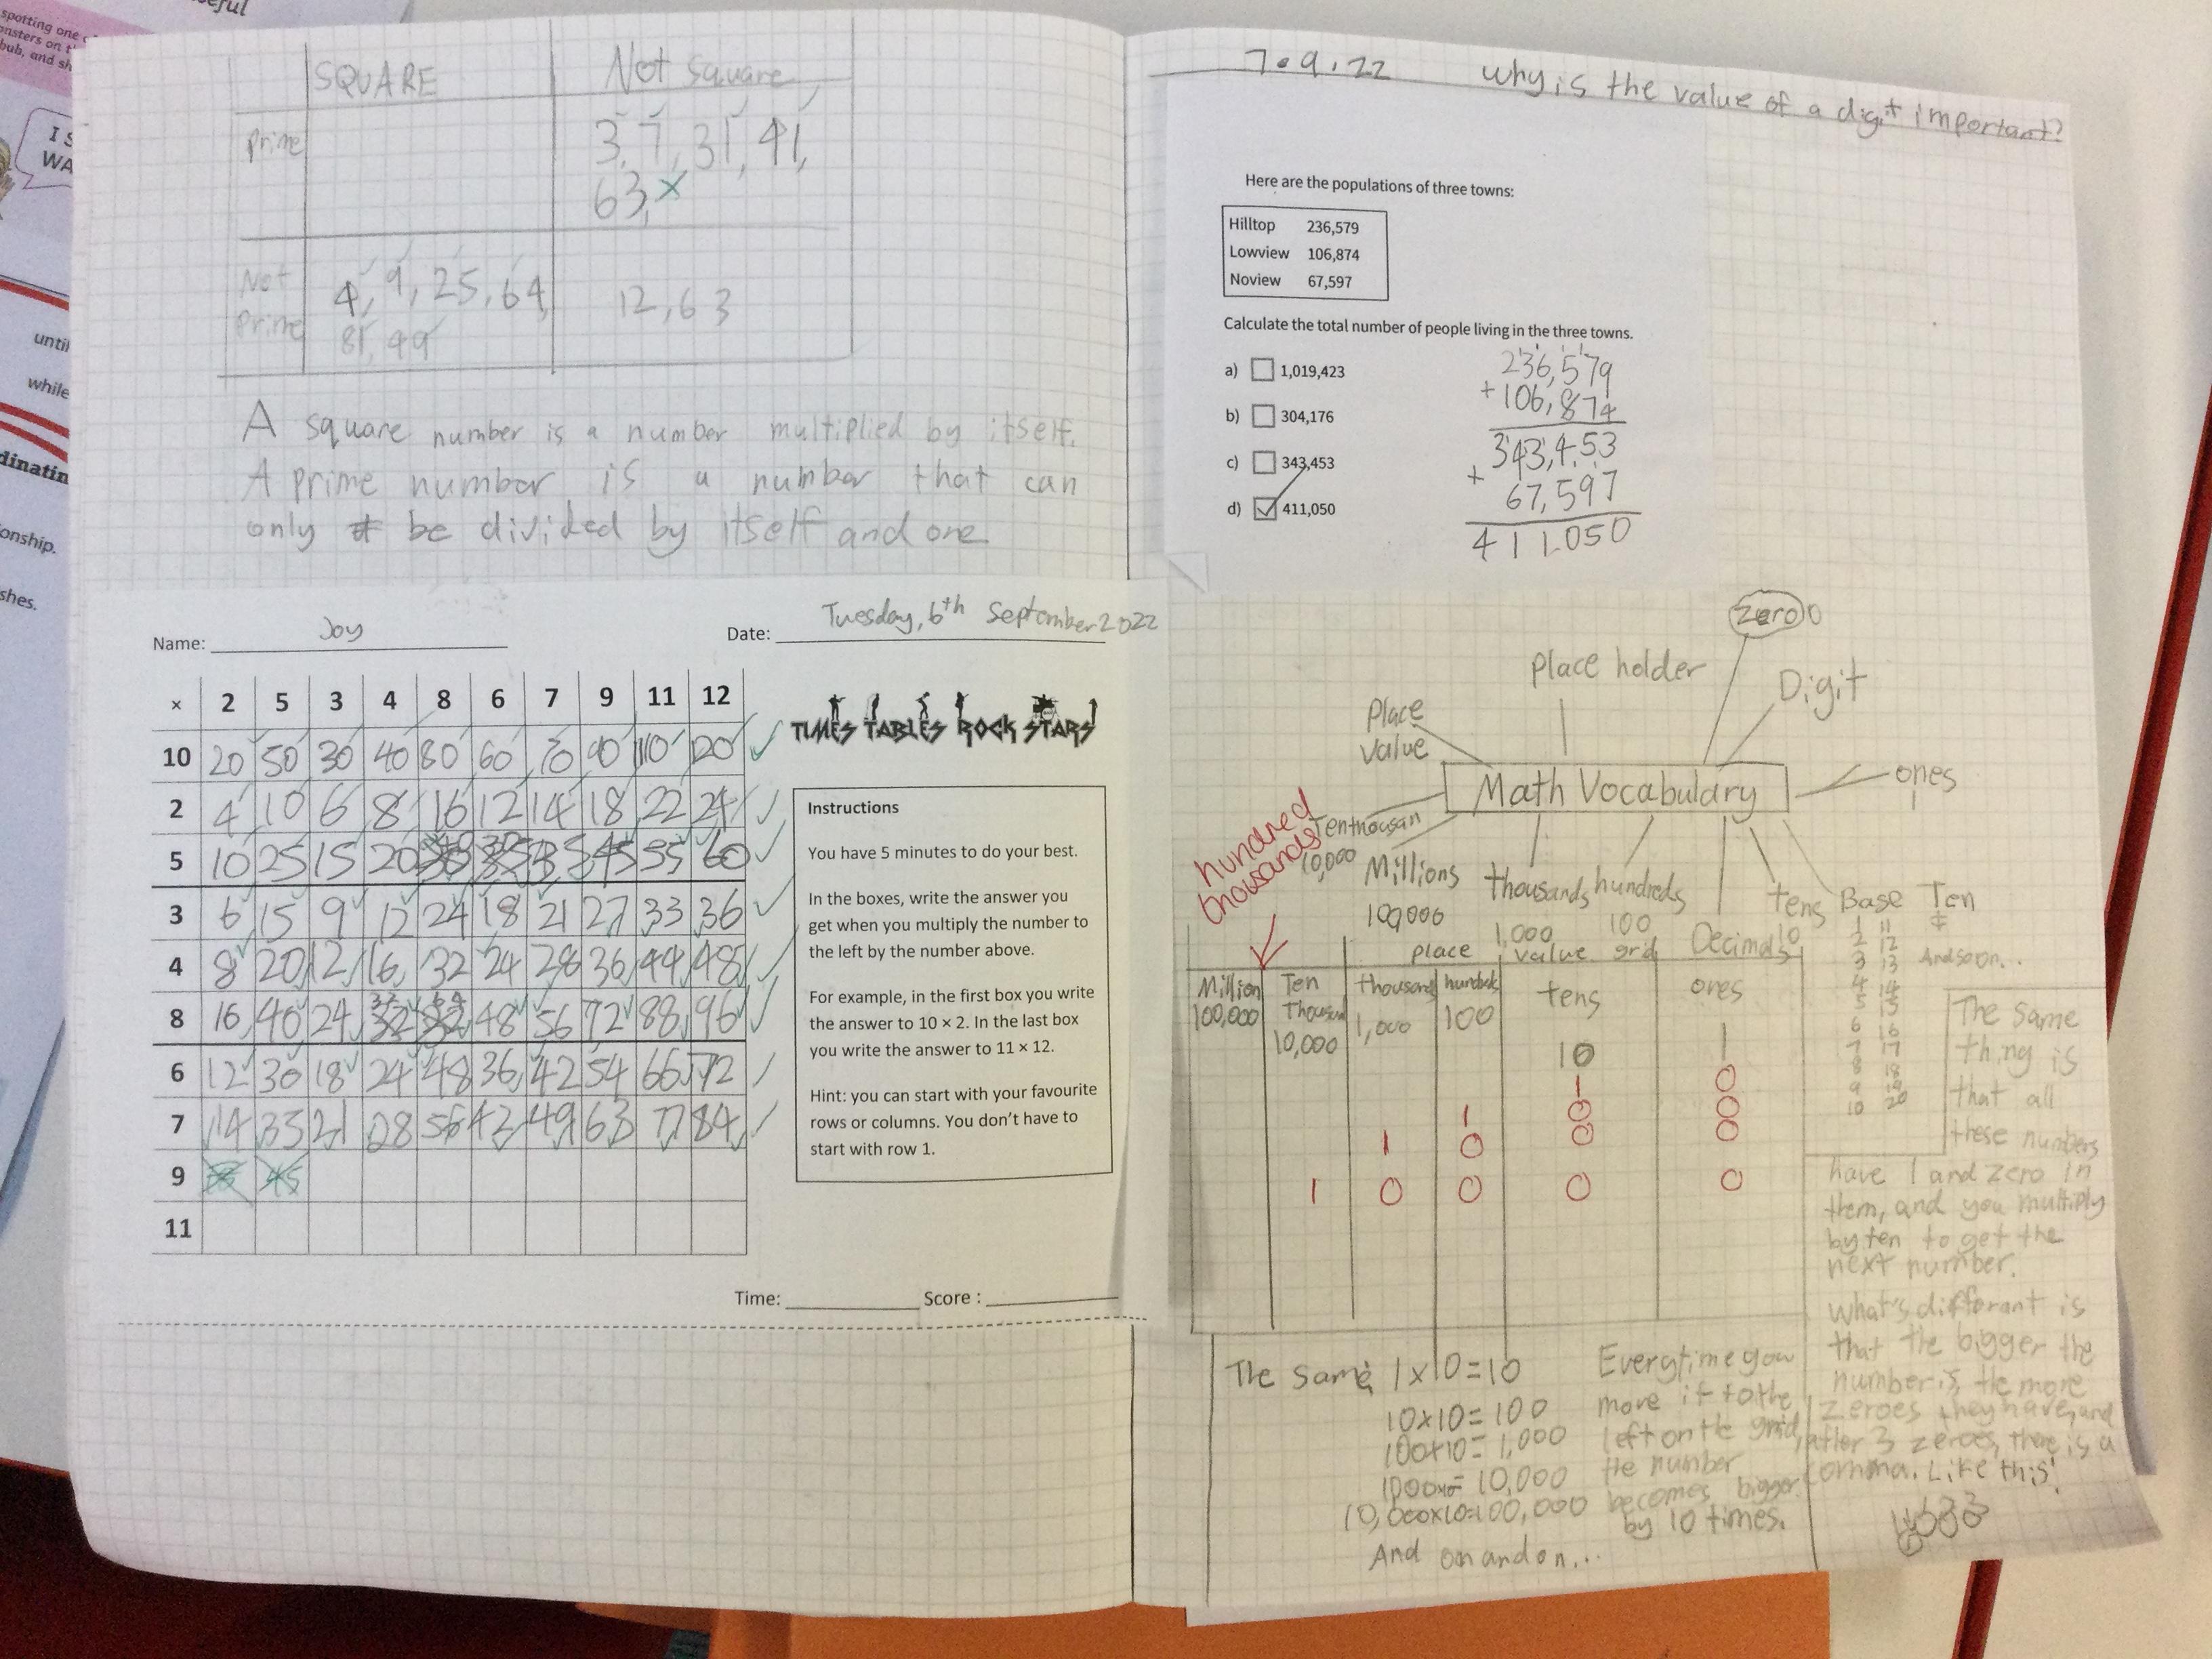 spotting one
bub, and sh
I S
WA
until
while
dinatin
onship.
shes.
SQUARE Not square
Prime 3, 7, 31, 41,
63, x
Not Prime 4, 9, 25, 64, 12, 63
81, 49
A square number is a number multiplied by itself.
A prime number is a number that can
only be divided by itself and one
Name: Joy Date: Tuesday, 6th September 2022
x 2 5 3 4 8 6 7 9 11 12
10 20 50 30 40 80 60 70 90 110 120
2 4 10 6 8 16 12 14 18 22 24
5 10 25 15 20 45 55 60
3 6 15 9 12 24 18 21 27 33 36
4 8 20 12 16 32 24 28 36 44 48
8 16 40 24 32 64 48 56 72 88 96
6 12 30 18 24 48 36 42 54 66 72
7 14 35 21 28 56 42 49 63 77 84
9 45
11
TIMES TABLES ROCK STARS
Instructions
You have 5 minutes to do your best.
In the boxes, write the answer you
get when you multiply the number to
the left by the number above.
For example, in the first box you write
the answer to 10 × 2. In the last box
you write the answer to 11 × 12.
Hint: you can start with your favourite
rows or columns. You don't have to
start with row 1.
Time: Score :
7.9.22 why is the value of a digit important?
Here are the populations of three towns:
Hilltop 236,579
Lowview 106,874
Noview 67,597
Calculate the total number of people living in the three towns.
a) 1,019,423
b) 304,176
c) 343,453
d) 411,050
236,579
+ 106,874
343,453
+ 67,597
411,050
zero 0
Place holder
Digit
Place
value
Math Vocabulary
ones
1
Ten thousan
10,000
Millions
100,000
thousands
1,000
hundreds
100
Decimals
tens
10
Base Ten
1 11
2 12
3 13 And so on...
4 14
5 15
6 16
7 17
8 18
9 19
10 20
hundred
thousands
place value grid
Million Ten Thousand thousands hundreds tens ones
100,000 10,000 1,000 100 10 1
1 0
1 0 0
1 0 0 0
1 0 0 0 0
The same
thing is
that all
these numbers
have 1 and zero in
them, and you multiply
by ten to get the
next number.
what's differant is
that the bigger the
number is, the more
zeroes they have, and
after 3 zeroes, there is a
comma. Like this!
The same 1x10=10
10x10=100
100x10=1,000
1000x10=10,000
10,000x10=100,000
And on and on...
Everytime you
move it to the
left on the grid,
the number
becomes bigger
by 10 times.